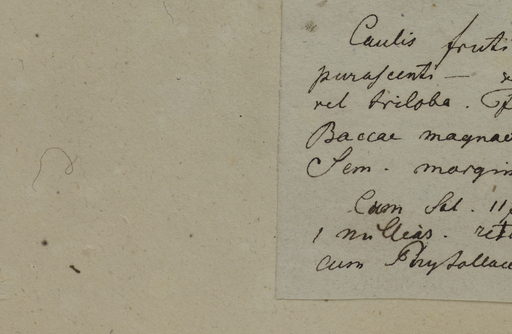 Caulis fruti
purascenti —
vel triloba.
Baccae magnae
Sem. margin
Cum Sol. 11
1 milleas. ret
cum Phytollac